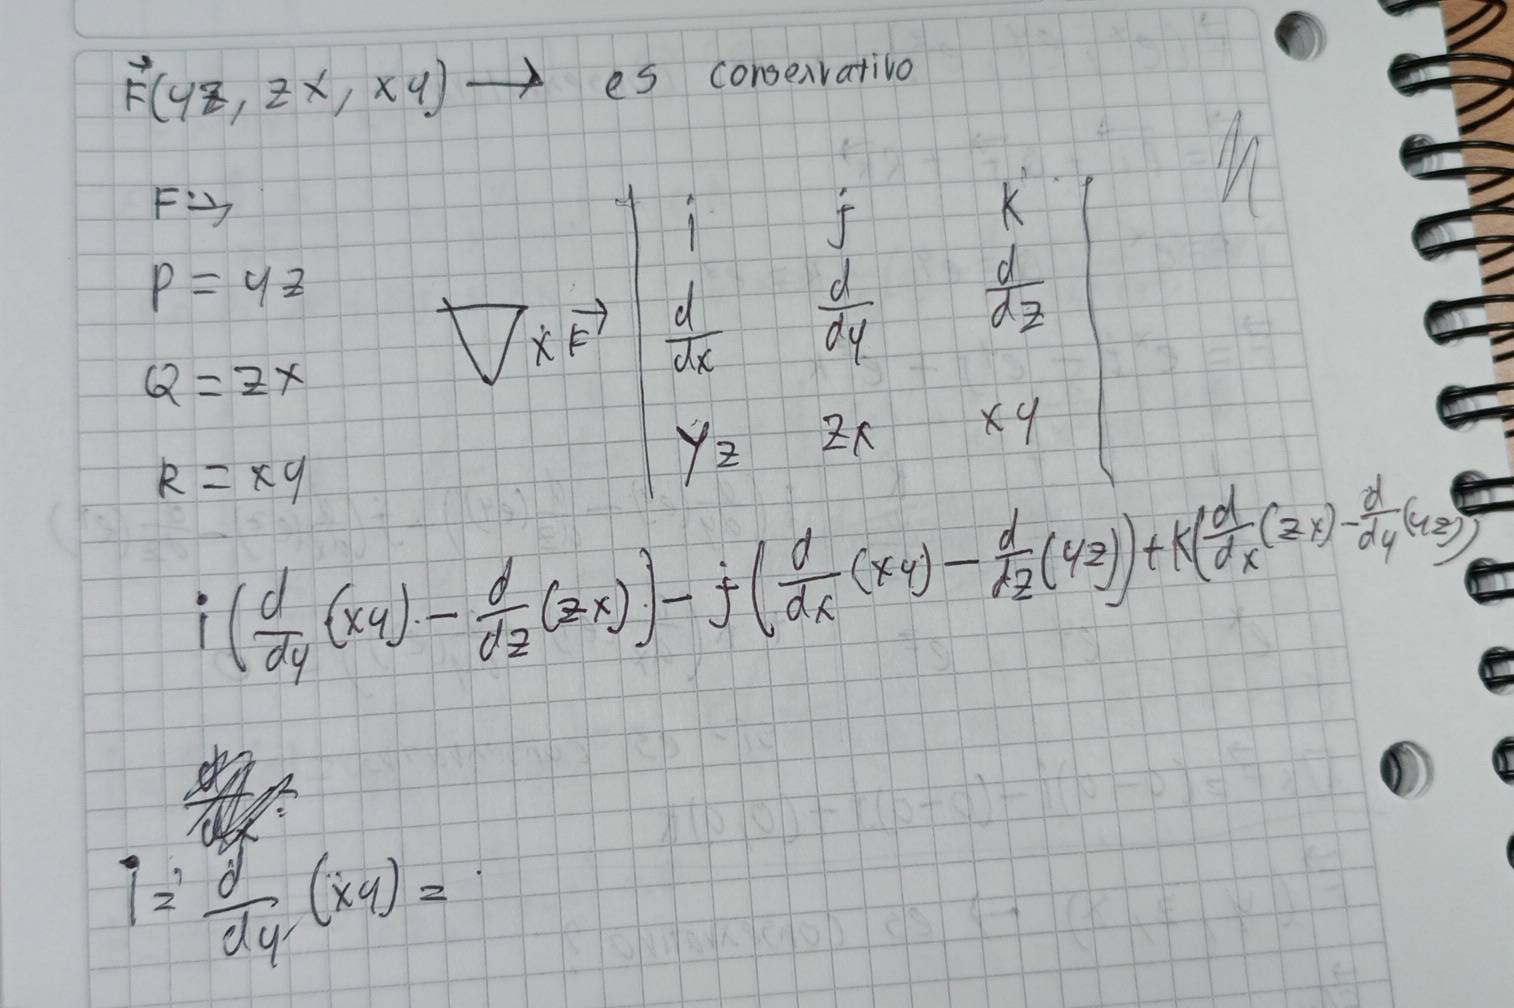 F⃗(yz, zx, xy) → es conservativo
F⃗
P = yz
Q = zx
R = xy
∇ × F⃗
| i j k |
| d/dx d/dy d/dz |
| yz zx xy |
i(d/dy (xy) - d/dz (zx)) - j(d/dx (xy) - d/dz (yz)) + k(d/dx (zx) - d/dy (yz))
i = d/dy (xy) =